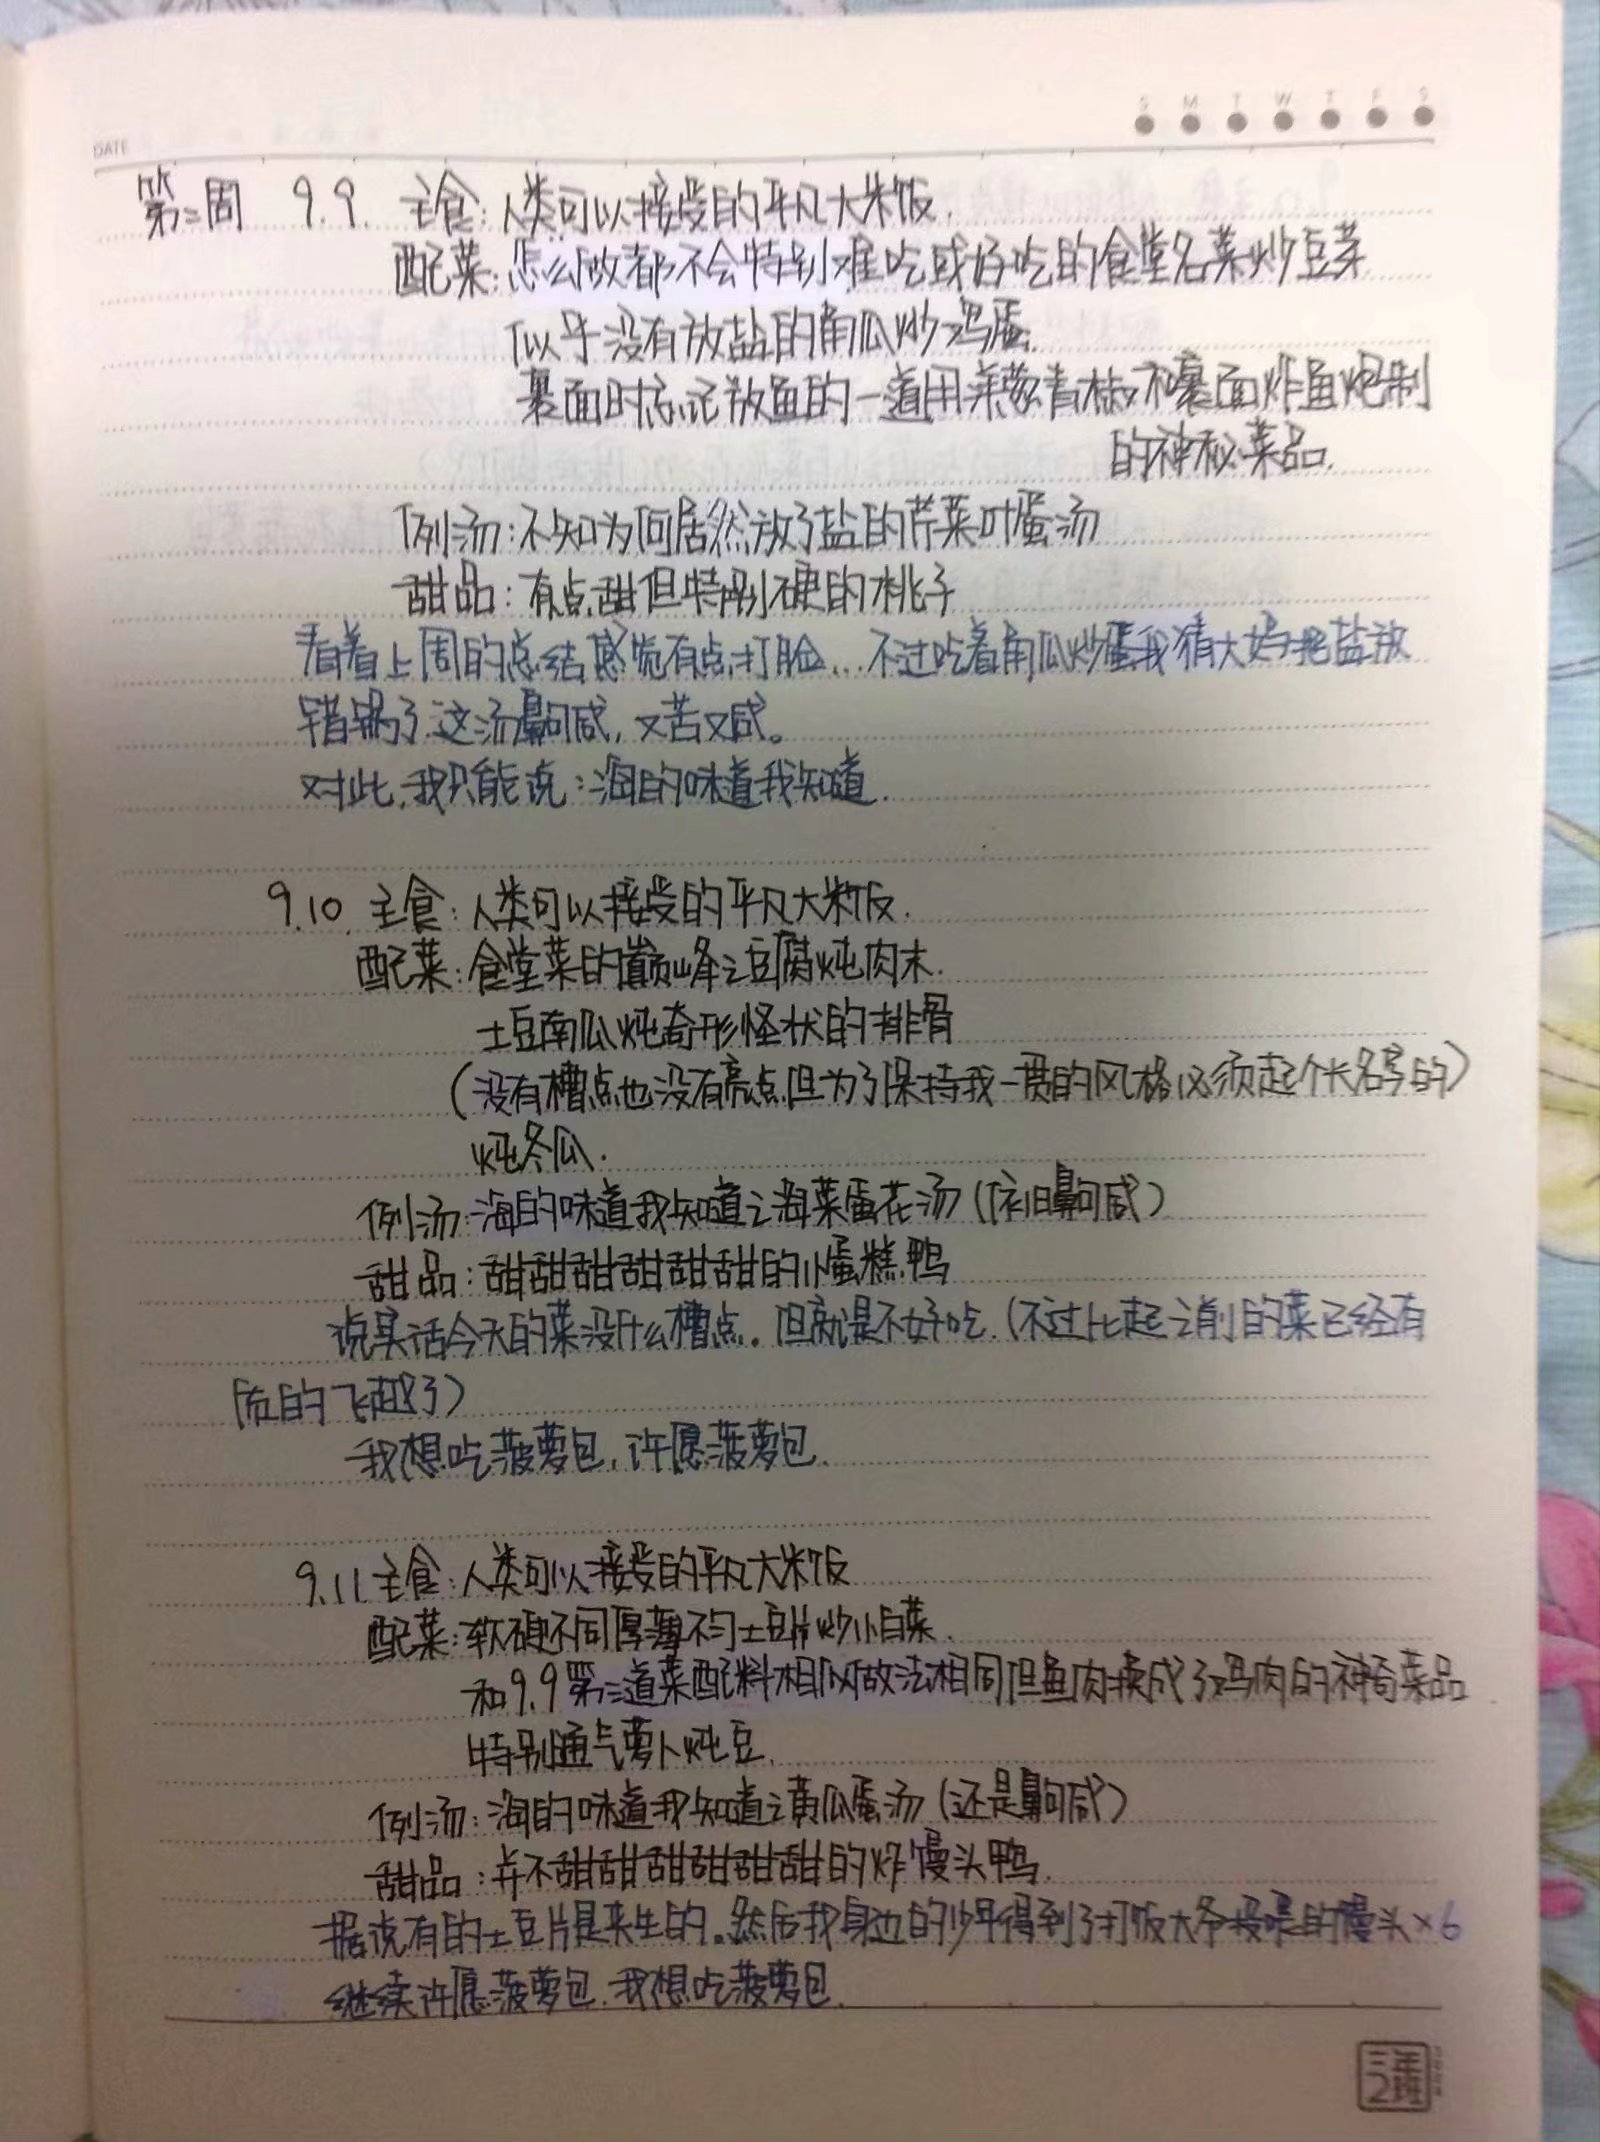 DATE
S M T W T F S
第二周 9.9. 主食:人类可以接受的平凡大米饭.
配菜:怎么做都不会特别难吃或好吃的食堂名菜炒豆芽
似乎没有放盐的角瓜炒鸡蛋.
裹面时忘记放鱼的一道用洋葱青椒和裹面炸鱼炮制
的神秘菜品.
例汤:不知为何居然放了盐的芹菜叶蛋汤
甜品:有点甜但特别硬的桃子
看着上周的总结感觉有点打脸...不过吃着角瓜炒蛋我猜大妈把盐放
错锅了.这汤齁咸,又苦又咸。
对此,我只能说:海的味道我知道.
9.10. 主食:人类可以接受的平凡大米饭.
配菜:食堂菜的巅峰之豆腐炖肉末.
土豆南瓜炖奇形怪状的排骨
(没有槽点也没有亮点但为了保持我一贯的风格必须起个长名字的)
炖冬瓜.
例汤:海的味道我知道之海菜蛋花汤(依旧齁咸)
甜品:甜甜甜甜甜甜的小蛋糕鸭
说实话今天的菜没什么槽点。但就是不好吃.(不过比起之前的菜已经有
质的飞越了)
我想吃菠萝包,许愿菠萝包.
9.11.主食:人类可以接受的平凡大米饭
配菜:软硬不同厚薄不匀土豆片炒小白菜.
和9.9第三道菜配料相似做法相同但鱼肉换成了鸡肉的神奇菜品
特别通气萝卜炖豆.
例汤:海的味道我知道之黄瓜蛋汤(还是齁咸)
甜品:并不甜甜甜甜甜甜的炸馒头鸭.
据说有的土豆片是夹生的。然后我身边的少年得到了打饭大爷投喂的馒头×6
继续许愿菠萝包.我想吃菠萝包.
三年
2班